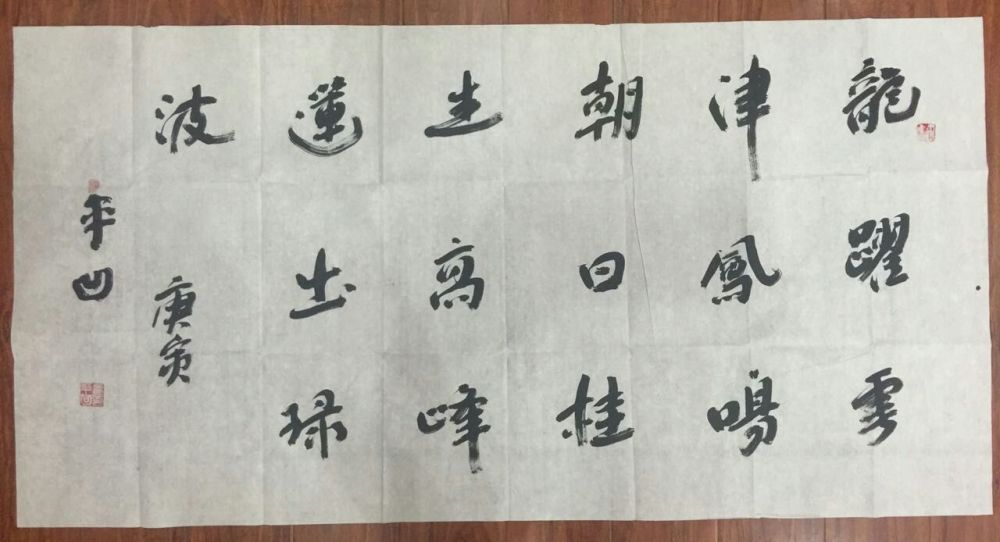 龍躍雲
津鳳鳴
朝日挂
出高峰
蓮出球
波
庚寅
平凹